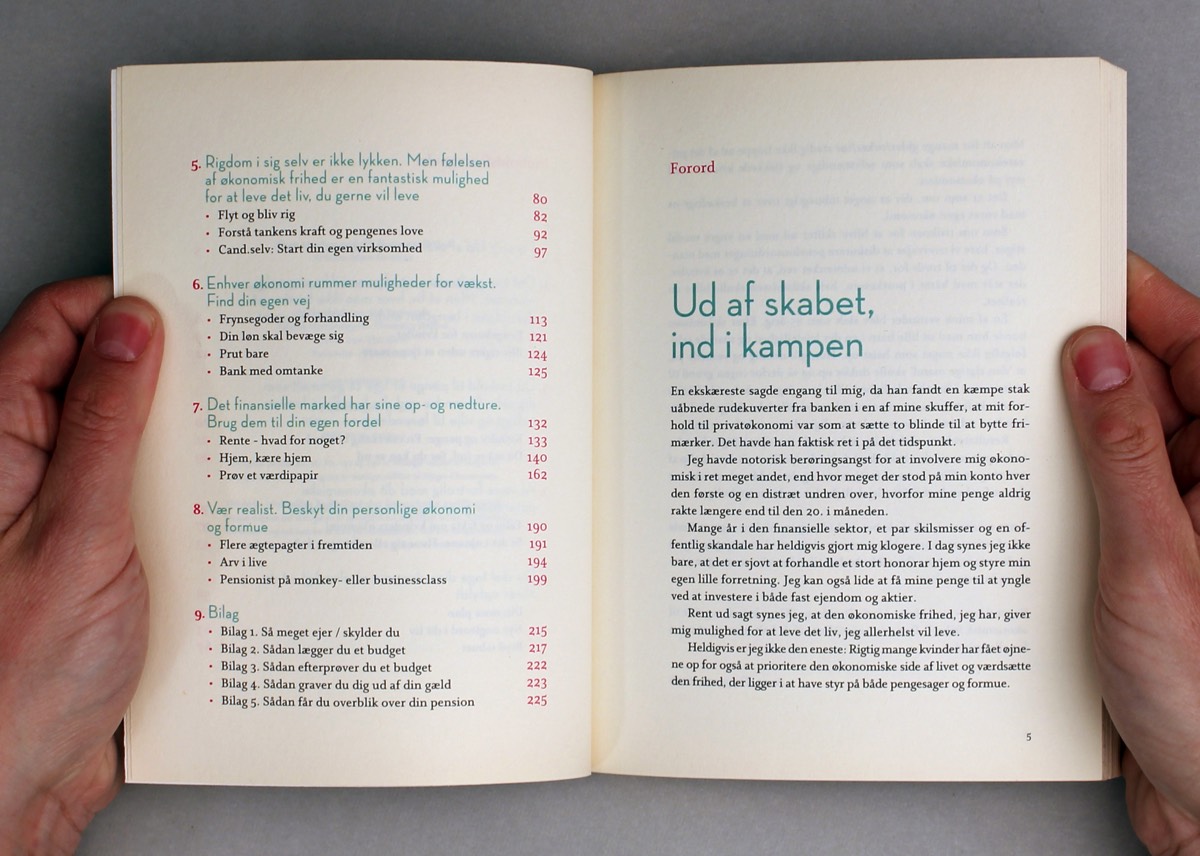 5. Rigdom i sig selv er ikke lykken. Men følelsen
af økonomisk frihed er en fantastisk mulighed
for at leve det liv, du gerne vil leve 80
• Flyt og bliv rig 82
• Forstå tankens kraft og pengenes love 92
• Cand.selv: Start din egen virksomhed 97
6. Enhver økonomi rummer muligheder for vækst.
Find din egen vej
• Frynsegoder og forhandling 113
• Din løn skal bevæge sig 121
• Prut bare 124
• Bank med omtanke 125
7. Det finansielle marked har sine op- og nedture.
Brug dem til din egen fordel 132
• Rente - hvad for noget? 133
• Hjem, kære hjem 140
• Prøv et værdipapir 162
8. Vær realist. Beskyt din personlige økonomi
og formue 190
• Flere ægtepagter i fremtiden 191
• Arv i live 194
• Pensionist på monkey- eller businessclass 199
9. Bilag
• Bilag 1. Så meget ejer / skylder du 215
• Bilag 2. Sådan lægger du et budget 217
• Bilag 3. Sådan efterprøver du et budget 222
• Bilag 4. Sådan graver du dig ud af din gæld 223
• Bilag 5. Sådan får du overblik over din pension 225
Forord
Ud af skabet,
ind i kampen
En ekskæreste sagde engang til mig, da han fandt en kæmpe stak
uåbnede rudekuverter fra banken i en af mine skuffer, at mit for-
hold til privatøkonomi var som at sætte to blinde til at bytte fri-
mærker. Det havde han faktisk ret i på det tidspunkt.
Jeg havde notorisk berøringsangst for at involvere mig økono-
misk i ret meget andet, end hvor meget der stod på min konto hver
den første og en distræt undren over, hvorfor mine penge aldrig
rakte længere end til den 20. i måneden.
Mange år i den finansielle sektor, et par skilsmisser og en of-
fentlig skandale har heldigvis gjort mig klogere. I dag synes jeg ikke
bare, at det er sjovt at forhandle et stort honorar hjem og styre min
egen lille forretning. Jeg kan også lide at få mine penge til at yngle
ved at investere i både fast ejendom og aktier.
Rent ud sagt synes jeg, at den økonomiske frihed, jeg har, giver
mig mulighed for at leve det liv, jeg allerhelst vil leve.
Heldigvis er jeg ikke den eneste: Rigtig mange kvinder har fået øjne-
ne op for også at prioritere den økonomiske side af livet og værdsætte
den frihed, der ligger i at have styr på både pengesager og formue.
5